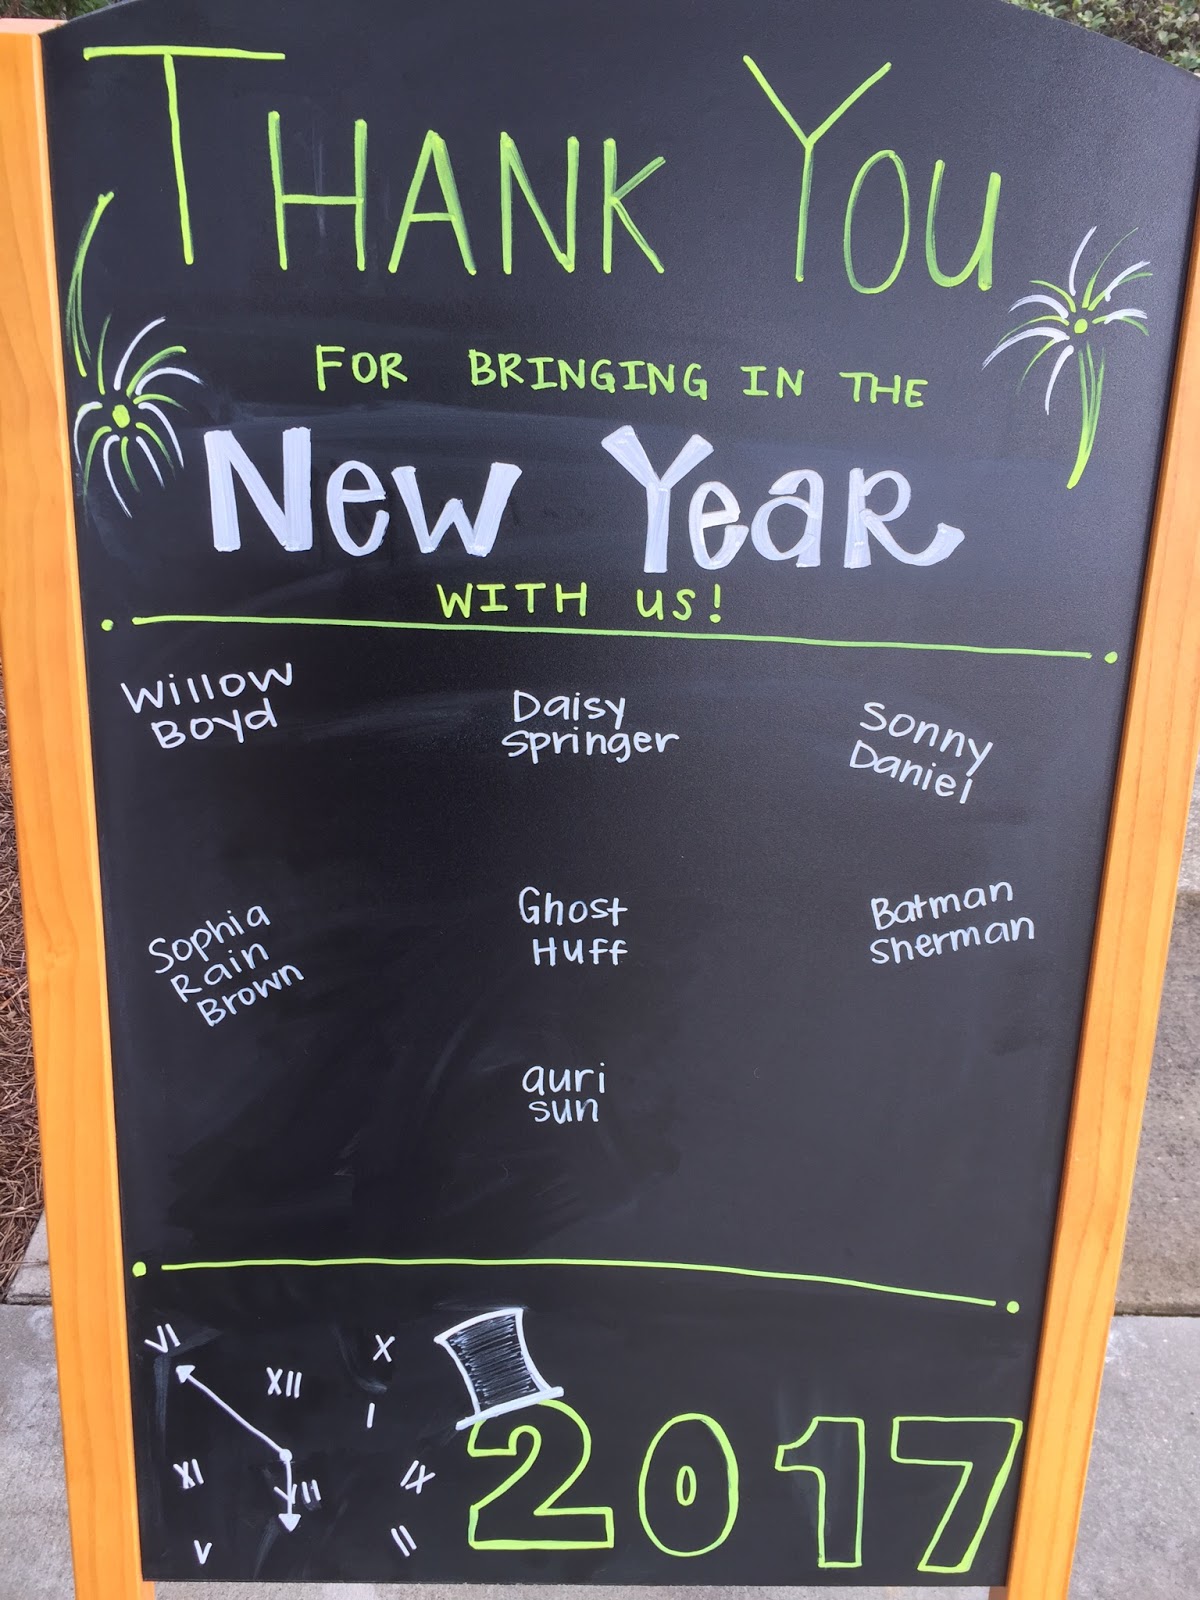 THANK YOU
FOR BRINGING IN THE
New YeaR
WITH US!
Willow
Boyd
Daisy
Springer
Sonny
Daniel
Sophia
Rain
Brown
Ghost
Huff
Batman
Sherman
auri
sun
VI
X
XII
I
XI
VII
IX
V
II
2017